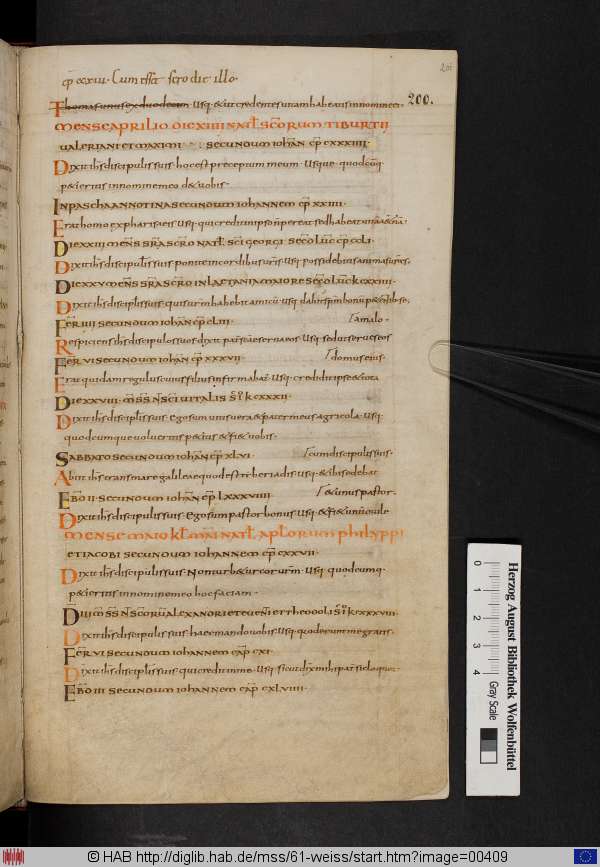 cp ccxiii. Cum esset sero die illo.
201
200.
Thomas unus ex duodecim. usq; & ut credentes uitam habeatis in nomine ei.
MENSE APRILIO DIE XIIII NAT SCORUM TIBURTII
UALERIANI ET MAXIMI SECUNDUM IOHAN CP CXXXIIII
Dixit ihs discipulis suis hoc est preceptum meum. Usque quodcūq
petieritis in nomine meo det uobis.
IN PASCHA ANNOTINA SECUNDUM IOHANNEM CP XXIIII.
Erat homo ex phariseis usq; qui credit in ipso n pereat sed habeat
DIE XXIII MENS SRA SCRO NAT SCI GEORGI SECD LUC CP CCLI.
Dixit ihs discipulis suis ponite in cordibus uris. usq; possidebitis animas uras.
DIE XXV MENS SRA SCRO IN LAETANIA MAIORE SECD LUC K CXXIIII.
Dixit ihs discipulis suis. quis urm habebit amicu. usq; dabit spm bonu petentib; se.
FER IIII SECUNDUM IOHAN CP CLIII.
a malo.
Respiciens ihs discipulos suos dixit pater serua eos. Usq; sed ut serues eos
FER VI SECUNDUM IOHAN CP XXXVII.
domus eius.
Erat quidam regulus cuius filius infirmabat. Usq; credidit ipse & tota
DIE XXVIII. MSS NSCI UITALIS K CXXXII.
Dixit ihs discipulis suis. ego sum uitis uera & pater meus agricola. usq;
quodcumque uolueritis petetis & fiet uobis.
SABBATO SECUNDUM IOHAN CP XLVI.
cum discipulis suis.
Abiit ihs trans mare galileae quod est tiberiadis usq; & ibi sedebat
EBD II. SECUNDUM IOHAN CP LXXXVIIII
& unus pastor.
Dixit ihs discipulis suis. ego sum pastor bonus usq; & fiet unū ouile
MENSE MAIO KL MAI NAT APLORUM PHILYPPI
ET IACOBI SECUNDUM IOHANNEM CP CXXVII.
Dixit ihs discipulis suis. Non turbetur cor urm. Usq; quodcumq
petieritis in nomine meo hoc faciam.
DIII MSS NSCORU ALEXANDRI ET EUENTI ET THEODOLI K CXXXVIII.
Dixit ihs discipulis suis haec mando uobis. Usq; quod eunt me gratis.
FER VI SECUNDUM IOHANNEM CAP CXI.
Dixit ihs discipulis suis qui credit in me. usq; sicut dix mihi pat sic loquor.
EBD III SECUNDUM IOHANNEM CAP CXLVIIII.
0 1 2 3 4
Gray Scale
Herzog August Bibliothek Wolfenbüttel
© HAB http://diglib.hab.de/mss/61-weiss/start.htm?image=00409